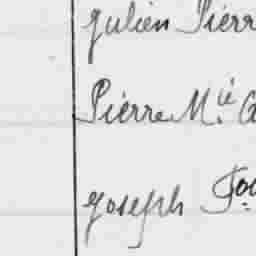 julien Pierr
Pierre M.ie
joseph